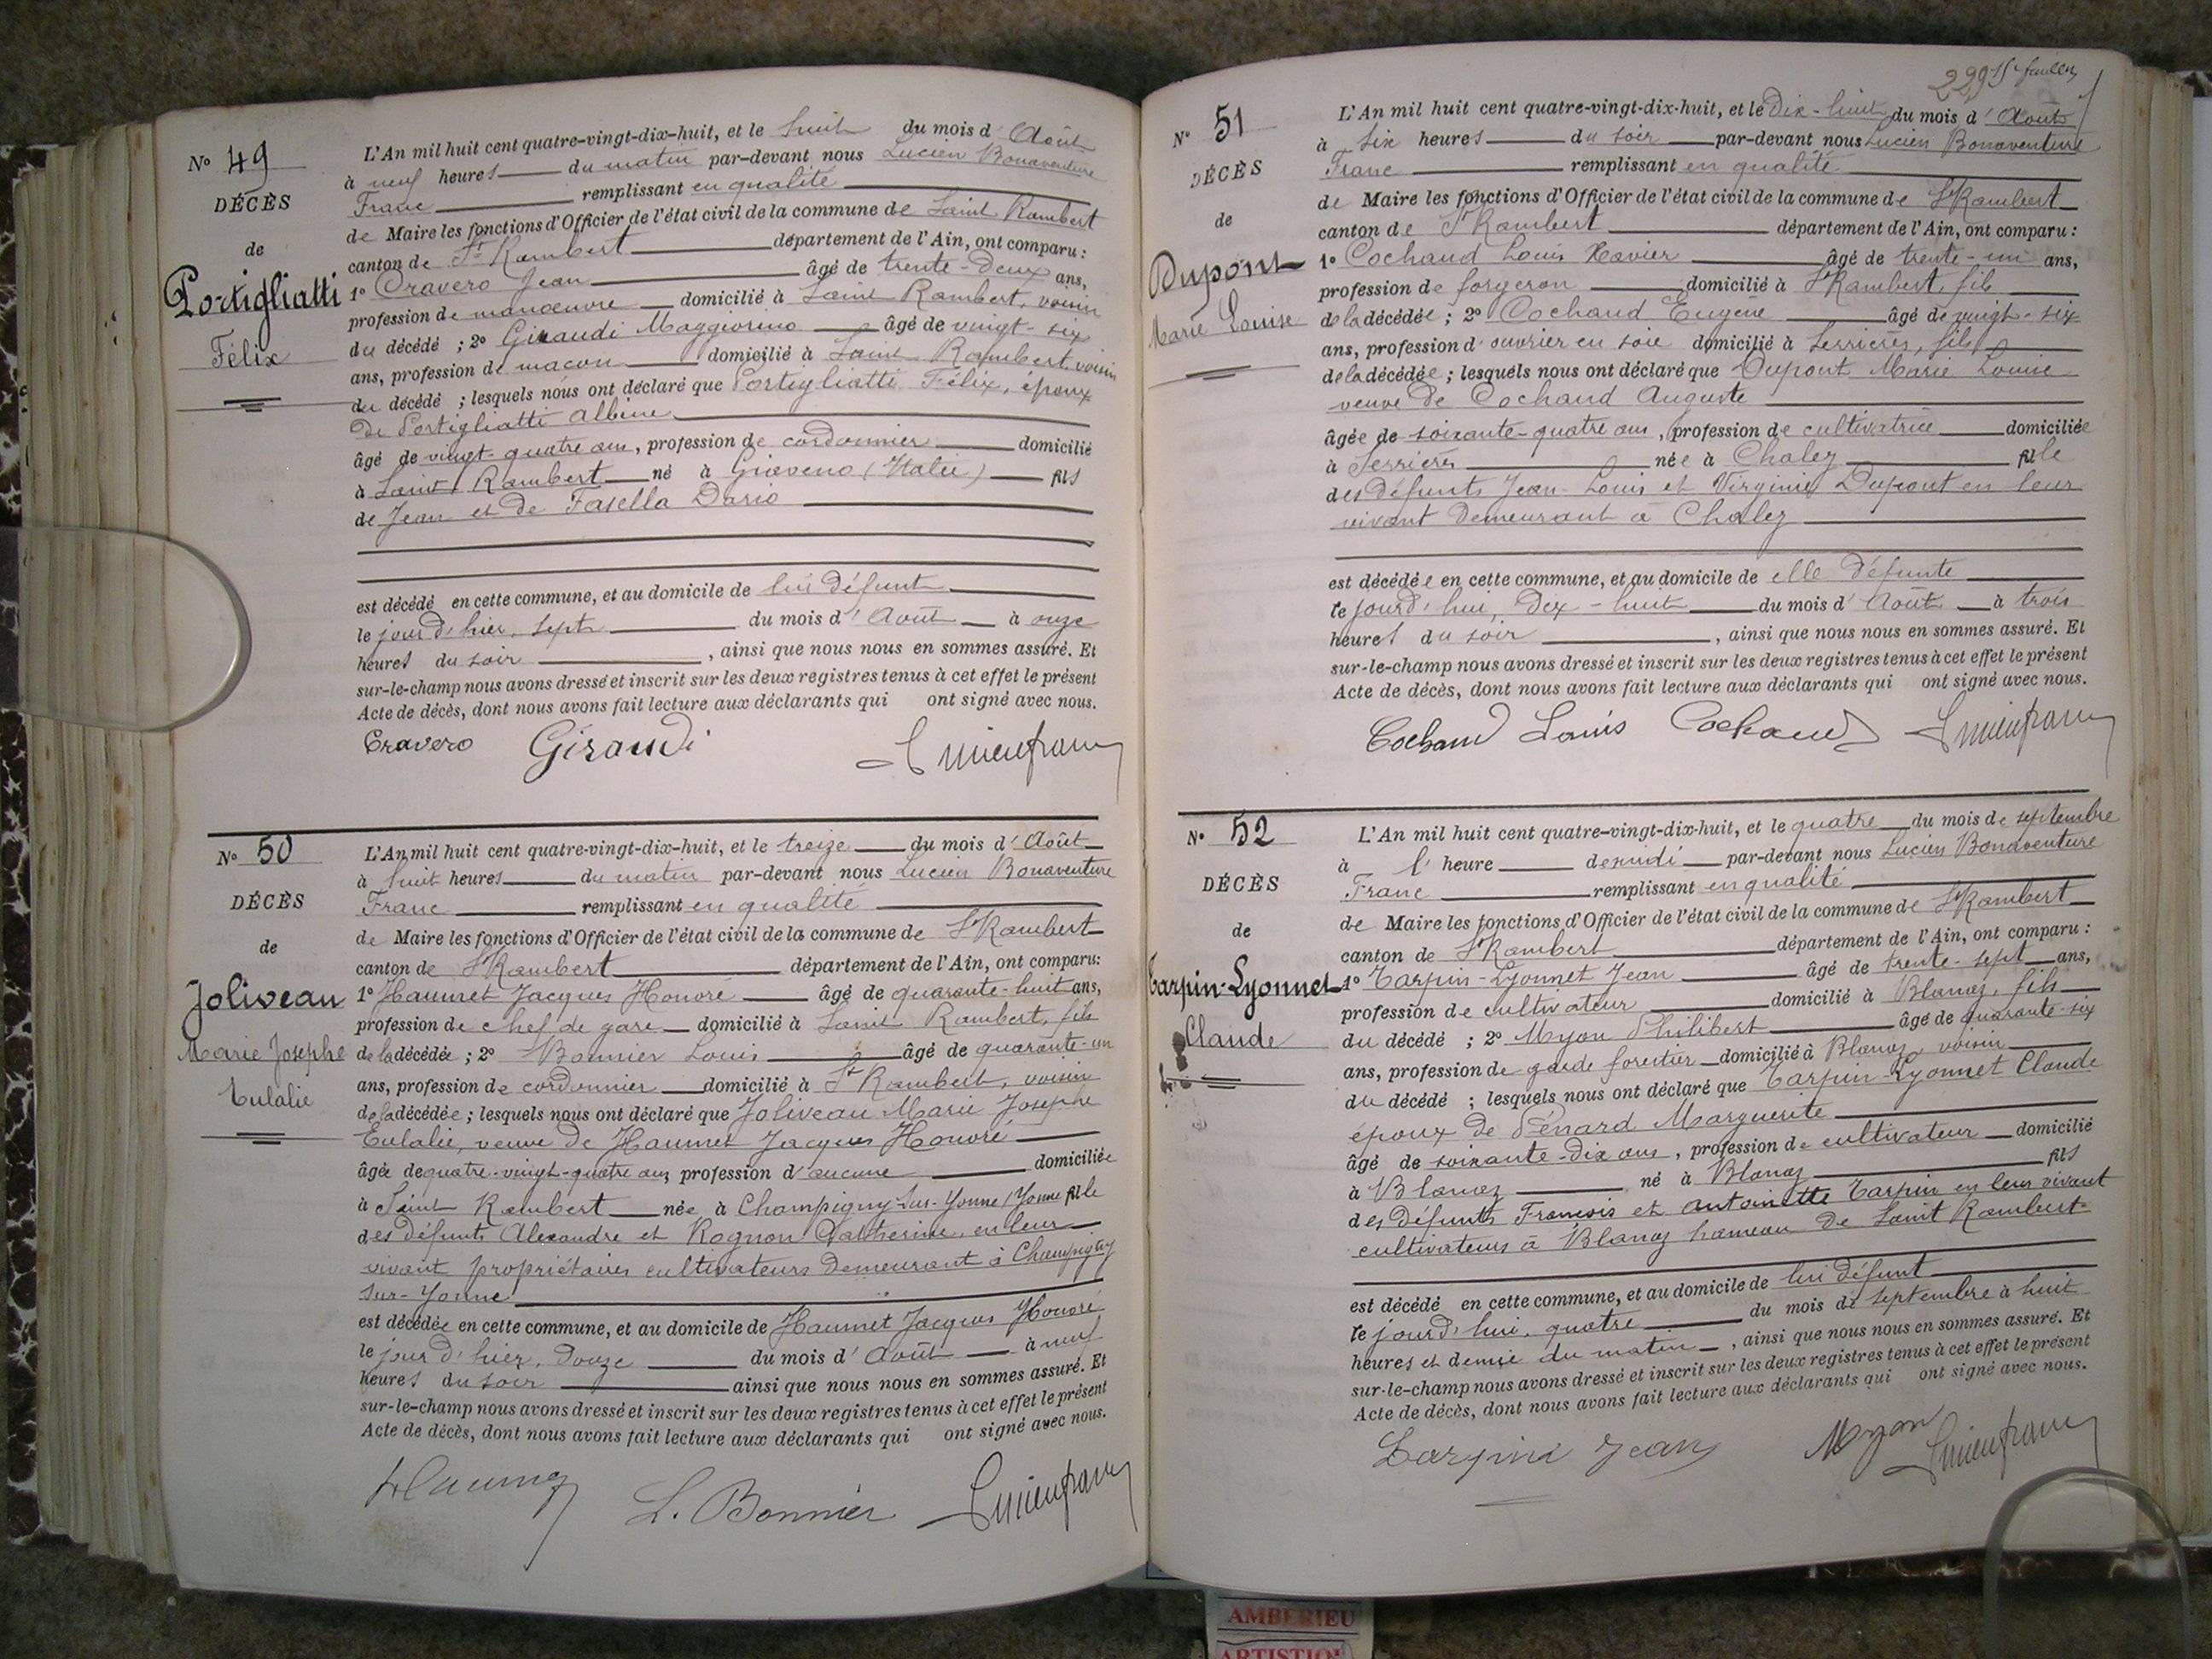 N° 49
DÉCÈS
de
Portigliatti
Félix
L'An mil huit cent quatre-vingt-dix-huit, et le huit du mois d'Août
à neuf heures du matin par-devant nous Lucien Bonaventure
Franc remplissant en qualité
de Maire les fonctions d'Officier de l'état civil de la commune de Saint Rambert
canton de St Rambert département de l'Ain, ont comparu :
1° Cravero Jean âgé de trente-deux ans,
profession de manœuvre domicilié à Saint Rambert, voisin
du décédé ; 2° Giraudi Maggiorino âgé de vingt-six
ans, profession de maçon domicilié à Saint Rambert, voisin
du décédé ; lesquels nous ont déclaré que Portigliatti Félix, époux
de Portigliatti Albine
âgé de vingt-quatre ans, profession de cordonnier domicilié
à Saint Rambert né à Giaveno (Italie) fils
de Jean et de Fasella Dario
est décédé en cette commune, et au domicile de lui défunt
le jour d'hier, sept du mois d'Août à onze
heures du soir, ainsi que nous nous en sommes assuré. Et
sur-le-champ nous avons dressé et inscrit sur les deux registres tenus à cet effet le présent
Acte de décès, dont nous avons fait lecture aux déclarants qui ont signé avec nous.
Cravero Giraudi Lucien franc
N° 50
DÉCÈS
de
Joliveau
Marie Josephe
Eulalie
L'An mil huit cent quatre-vingt-dix-huit, et le treize du mois d'Août
à huit heures du matin par-devant nous Lucien Bonaventure
Franc remplissant en qualité
de Maire les fonctions d'Officier de l'état civil de la commune de St Rambert
canton de St Rambert département de l'Ain, ont comparu :
1° Haumet Jacques Honoré âgé de quarante-huit ans,
profession de chef de gare domicilié à Saint Rambert, fils
de la décédée ; 2° Bonnier Louis âgé de quarante-un
ans, profession de cordonnier domicilié à St Rambert, voisin
de la décédée ; lesquels nous ont déclaré que Joliveau Marie Josephe
Eulalie, veuve de Haumet Jacques Honoré
âgée de quatre-vingt-quatre ans, profession d'aucune domiciliée
à Saint Rambert née à Champigny-sur-Yonne (Yonne fille
des défunts Alexandre et Rognon Catherine, en leur
vivant propriétaires cultivateurs demeurant à Champigny
sur-Yonne
est décédée en cette commune, et au domicile de Haumet Jacques Honoré
le jour d'hier, douze du mois d'Août à neuf
heures du soir ainsi que nous nous en sommes assuré. Et
sur-le-champ nous avons dressé et inscrit sur les deux registres tenus à cet effet le présent
Acte de décès, dont nous avons fait lecture aux déclarants qui ont signé avec nous.
Haumet L. Bonnier Lucien franc
229
N° 51
DÉCÈS
de
Dupont
Marie Louise
L'An mil huit cent quatre-vingt-dix-huit, et le Dix-huit du mois d'Août
à six heures du soir par-devant nous Lucien Bonaventure
Franc remplissant en qualité
de Maire les fonctions d'Officier de l'état civil de la commune de St Rambert
canton de St Rambert département de l'Ain, ont comparu :
1° Cochand Louis Xavier âgé de trente-un ans,
profession de forgeron domicilié à St Rambert, fils
de la décédée ; 2° Cochand Eugène âgé de vingt-six
ans, profession d'ouvrier en soie domicilié à Serrières, fils
de la décédée ; lesquels nous ont déclaré que Dupont Marie Louise
veuve de Cochand Auguste
âgée de soixante-quatre ans, profession de cultivatrice domiciliée
à Serrières née à Chaley fille
des défunts Jean-Louis et Virginie Dupont en leur
vivant demeurant à Chaley
est décédée en cette commune, et au domicile de elle défunte
le jour d'hui, dix-huit du mois d'Août à trois
heures du soir, ainsi que nous nous en sommes assuré. Et
sur-le-champ nous avons dressé et inscrit sur les deux registres tenus à cet effet le présent
Acte de décès, dont nous avons fait lecture aux déclarants qui ont signé avec nous.
Cochand Louis Cochaud Lucien franc
N° 52
DÉCÈS
de
Tarpin-Lyonnet
Claude
L'An mil huit cent quatre-vingt-dix-huit, et le quatre du mois de septembre
à l'heure de midi par-devant nous Lucien Bonaventure
Franc remplissant en qualité
de Maire les fonctions d'Officier de l'état civil de la commune de St Rambert
canton de St Rambert département de l'Ain, ont comparu :
1° Tarpin-Lyonnet Jean âgé de trente-sept ans,
profession de cultivateur domicilié à Blanaz, fils
du décédé ; 2° Myon Philibert âgé de quarante-six
ans, profession de garde forestier domicilié à Blanaz, voisin
du décédé ; lesquels nous ont déclaré que Tarpin-Lyonnet Claude
époux de Pénard Marguerite
âgé de soixante-dix ans, profession de cultivateur domicilié
à Blanaz né à Blanaz fils
des défunts François et Antoinette Tarpin en leur vivant
cultivateurs à Blanaz hameau de Saint Rambert
est décédé en cette commune, et au domicile de lui défunt
le jour d'hui, quatre du mois de septembre à huit
heures et demie du matin, ainsi que nous nous en sommes assuré. Et
sur-le-champ nous avons dressé et inscrit sur les deux registres tenus à cet effet le présent
Acte de décès, dont nous avons fait lecture aux déclarants qui ont signé avec nous.
Tarpin Jean Myon Lucien franc
AMBERIEU